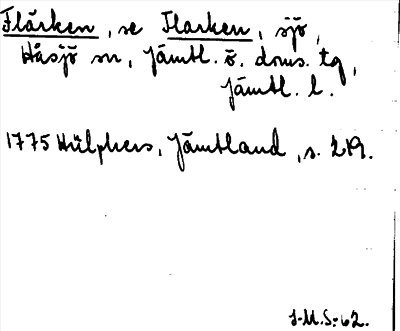 Flärken, se Flarken, sjö,
Håsjö sn, Jämtl. ö. doms. tg,
Jämtl. l.
1775 Hülphers, Jämtland, s. 219.
J.M.S.-62.